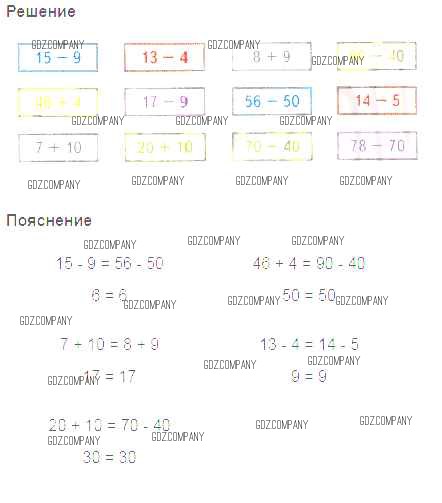 Решение
GDZCOMPANY GDZCOMPANY GDZCOMPANY
15 − 9 13 − 4 8 + 9 − 40
46 + 4 17 − 9 56 − 50 14 − 5
GDZCOMPANY GDZCOMPANY GDZCOMPANY
7 + 10 20 + 10 70 − 40 78 − 70
GDZCOMPANY GDZCOMPANY GDZCOMPANY GDZCOMPANY
Пояснение
GDZCOMPANY GDZCOMPANY GDZCOMPANY
15 - 9 = 56 - 50 46 + 4 = 90 - 40
6 = 6 50 = 50
GDZCOMPANY GDZCOMPANY GDZCOMPANY
GDZCOMPANY
7 + 10 = 8 + 9 13 - 4 = 14 - 5
GDZCOMPANY GDZCOMPANY
17 = 17 9 = 9
GDZCOMPANY
20 + 10 = 70 - 40 GDZCOMPANY GDZCOMPANY
GDZCOMPANY GDZCOMPANY
30 = 30